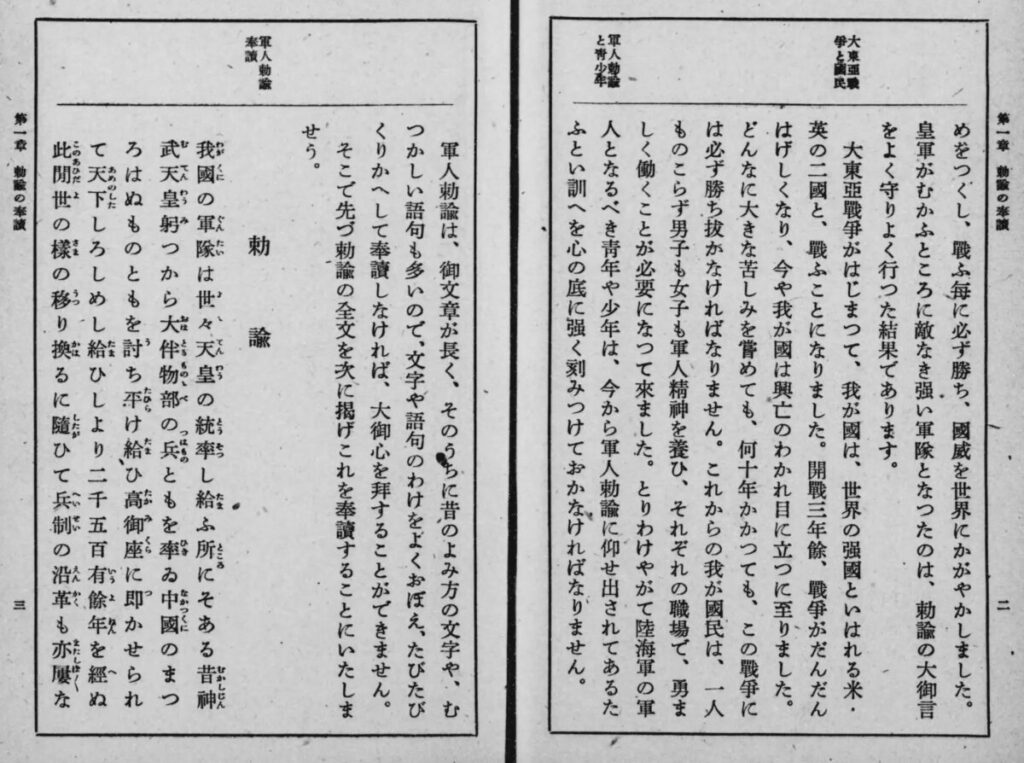 第一章　勅諭の奉讀
二
大東亞戰
爭と國民
軍人勅諭
と靑少年
めをつくし、戰ふ每に必ず勝ち、國威を世界にかがやかしました。
皇軍がむかふところに敵なき强い軍隊となつたのは、勅諭の大御言
をよく守りよく行つた結果であります。
大東亞戰爭がはじまつて、我が國は、世界の强國といはれる米・
英の二國と、戰ふことになりました。開戰三年餘、戰爭がだんだん
はげしくなり、今や我が國は興亡のわかれ目に立つに至りました。
どんなに大きな苦しみを嘗めても、何十年かかつても、この戰爭に
は必ず勝ち拔かなければなりません。これからの我が國民は、一人
ものこらず男子も女子も軍人精神を養ひ、それぞれの職場で、勇ま
しく働くことが必要になつて來ました。とりわけやがて陸海軍の軍
人となるべき靑年や少年は、今から軍人勅諭に仰せ出されてあるた
ふとい訓へを心の底に强く刻みつけておかなければなりません。
軍人勅諭
奉讀
軍人勅諭は、御文章が長く、そのうちに昔のよみ方の文字や、む
つかしい語句も多いので、文字や語句のわけをよくおぼえ、たびたび
くりかへして奉讀しなければ、大御心を拜することができません。
そこで先づ勅諭の全文を次に揭げこれを奉讀することにいたしま
せう。
勅諭
我國の軍隊は世々天皇の統率し給ふ所にそある昔神
武天皇躬つから大伴物部の兵ともを率ゐ中國のまつ
ろはぬものともを討ち平け給ひ高御座に卽かせられ
て天下しろしめし給ひしより二千五百有餘年を經ぬ
此間世の樣の移り換るに隨ひて兵制の沿革も亦屢な
第一章　勅諭の奉讀
三